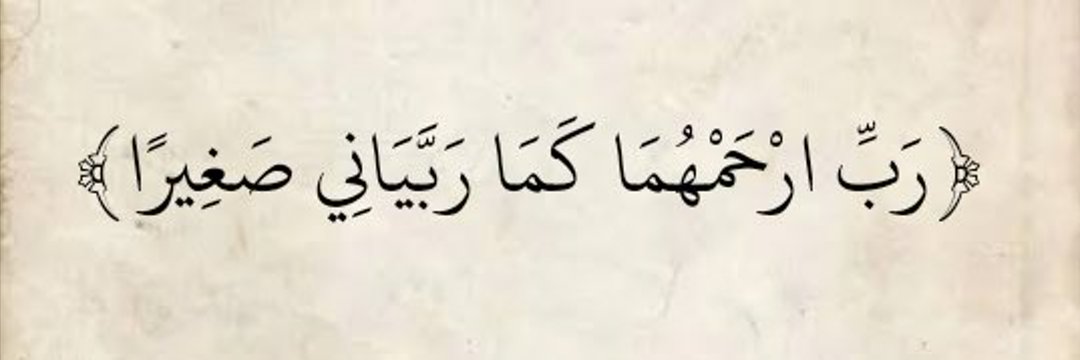 ﴿رَبِّ ارْحَمْهُمَا كَمَا رَبَّيَانِي صَغِيرًا﴾